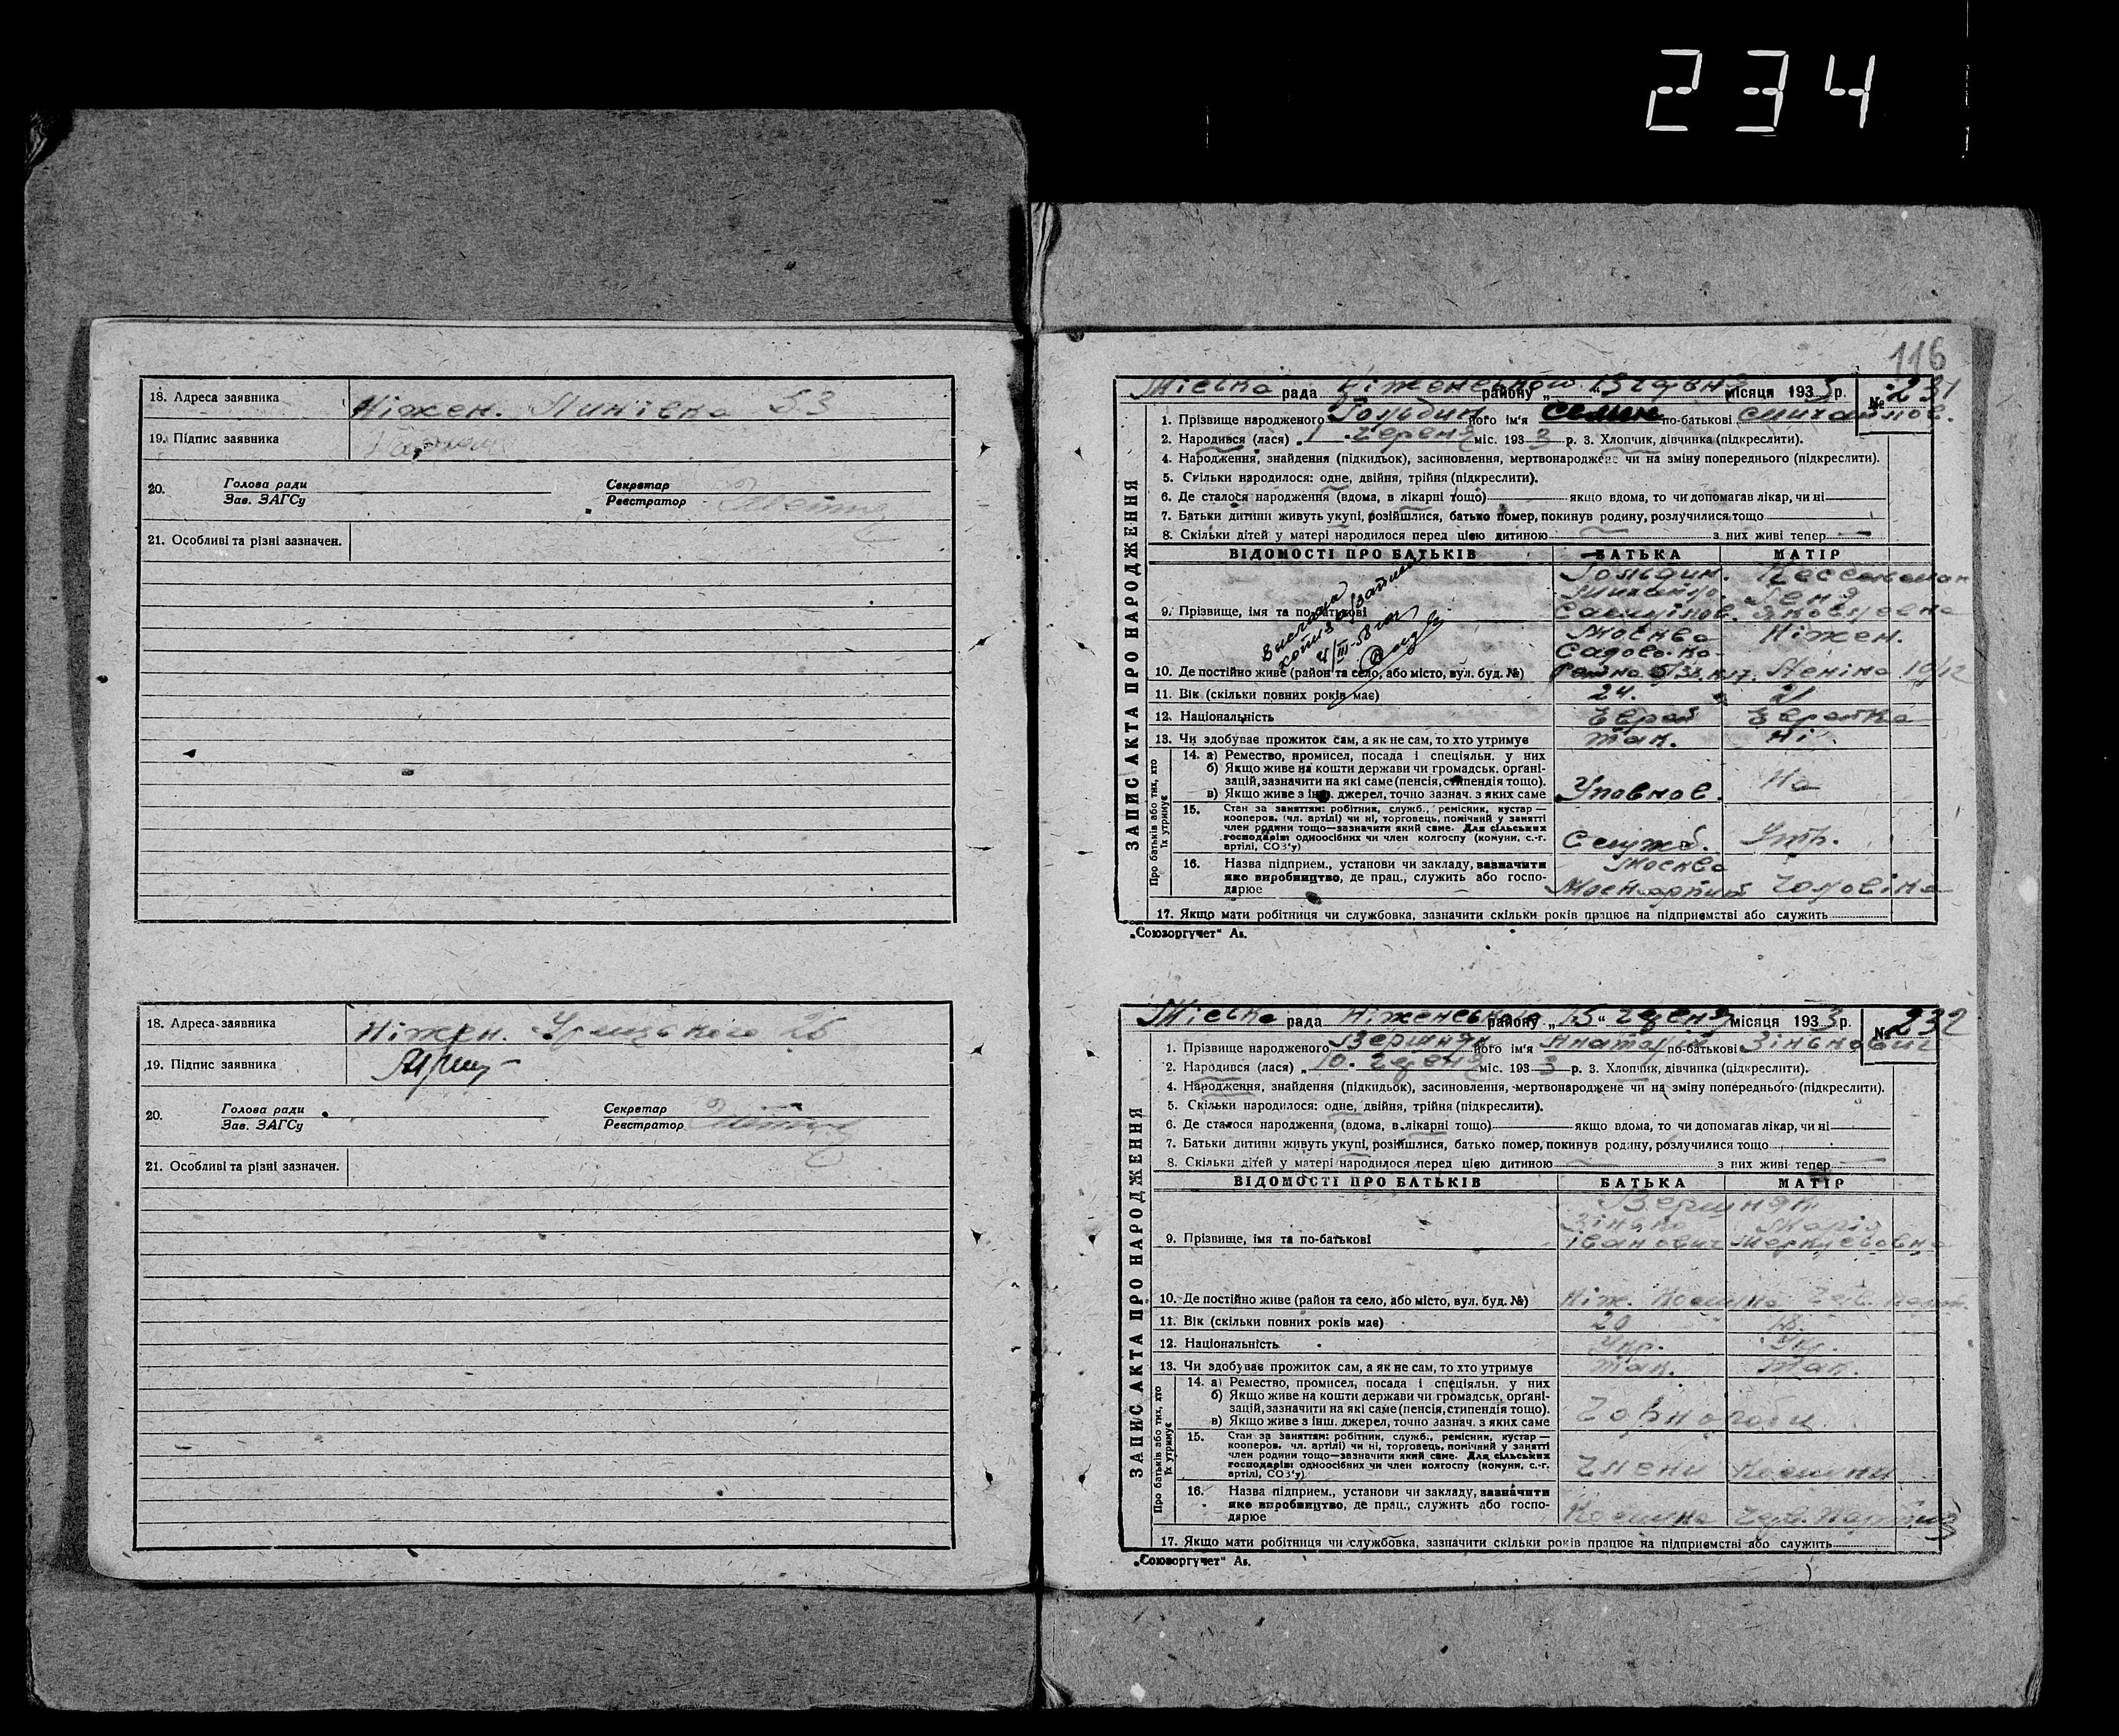 234
18. Адреса заявника Ніжен. Минівка 53
19. Підпис заявника
20. Голова ради Секретар
Зав. ЗАГСу Реєстратор
21. Особливі та різні зазначен.
18. Адреса заявника Ніжен. 26
19. Підпис заявника
20. Голова ради Секретар
Зав. ЗАГСу Реєстратор
21. Особливі та різні зазначен.
116
Міська рада Ніженського району „13“ червня місяця 1933 р. № 231
1. Прізвище народженого Гольдин його ім'я Семен по-батькові Михайлов.
2. Народився (лася) „1 червня міс. 1933 р. 3. Хлопчик, дівчинка (підкреслити).
4. Народження, знайдення (підкидьок), засиновлення, мертвонароджене чи на зміну попереднього (підкреслити).
5. Скільки народилося: одне, двійня, трійня (підкреслити).
6. Де сталося народження (вдома, в лікарні тощо) якщо вдома, то чи допомагав лікар, чи ні
7. Батьки дитини живуть укупі, розійшлися, батько помер, покинув родину, розлучилися тощо
8. Скільки дітей у матері народилося перед цією дитиною з них живі тепер —
ЗАПИС АКТА ПРО НАРОДЖЕННЯ
ВІДОМОСТІ ПРО БАТЬКІВ БАТЬКА МАТІР
Гольдин.
Михайло. Геня
9. Прізвище, імя та по-батькові Самуїлов. Яковлевна
Москва Ніжен.
Садово-Ка-
10. Де постійно живе (район та село, або місто, вул. буд. №) Леніна 19/12
11. Вік (скільки повних років має) 24. 21
12. Національність Єврей Єврейка
13. Чи здобуває прожиток сам, а як не сам, то хто утримує так. ні
Про батьків або тих, хто їх утримує
14. а) Ремество, промисел, посада і спеціяльн. у них
б) Якщо живе на кошти держави чи громадськ. органі-
зацій, зазначити на які саме (пенсія, стипендія тощо).
в) Якщо живе з інш. джерел, точно зазнач. з яких саме Уповнов. На
15. Стан за заняттям: робітник, служб., ремісник, кустар —
кооперов. (чл. артілі) чи ні, торговець, помічний у занятті
член родини тощо—зазначити який саме. Для сільських
господарів: одноосібних чи член колгоспу (комуни, с.-г.
артілі, СОЗ'у) Служб. Утр.
16. Назва підприєм., установи чи закладу, зазначити Москва
яке виробництво, де прац., служить або госпо-
дарює чоловіка
17. Якщо мати робітниця чи службовка, зазначити скільки років працює на підприємстві або служить
„Союзоргучет“ А₅.
Міська рада Ніженського району „15“ червня місяця 1933 р. № 232
1. Прізвище народженого Вершняк його ім'я Анатолій по-батькові Зінькович
2. Народився (лася) „10. червня міс. 1933 р. 3. Хлопчик, дівчинка (підкреслити).
4. Народження, знайдення (підкидьок), засиновлення, мертвонароджене чи на зміну попереднього (підкреслити).
5. Скільки народилося: одне, двійня, трійня (підкреслити).
6. Де сталося народження, (вдома, в лікарні тощо) якщо вдома, то чи допомагав лікар, чи ні
7. Батьки дитини живуть укупі, розійшлися, батько помер, покинув родину, розлучилися тощо
8. Скільки дітей у матері народилося перед цією дитиною з них живі тепер
ЗАПИС АКТА ПРО НАРОДЖЕННЯ
ВІДОМОСТІ ПРО БАТЬКІВ БАТЬКА МАТІР
Вершняк
Зінько Марія
9. Прізвище, імя та по-батькові Іванович Меркуєвовна
10. Де постійно живе (район та село, або місто, вул. буд. №) Ніж. Комуна Черв. Парт.
11. Вік (скільки повних років має) 20
12. Національність Укр. Ук.
13. Чи здобуває прожиток сам, а як не сам, то хто утримує так. так.
Про батьків або тих, хто їх утримує
14. а) Ремество, промисел, посада і спеціяльн. у них
б) Якщо живе на кошти держави чи громадськ. органі-
зацій, зазначити на які саме (пенсія, стипендія тощо).
в) Якщо живе з інш. джерел, точно зазнач. з яких саме Чорнороби
15. Стан за заняттям: робітник, служб., ремісник, кустар —
кооперов. чл. артілі) чи ні, торговець, помічний у занятті
член родини тощо—зазначити який саме. Для сільських
господарів: одноосібних чи член колгоспу (комуни, с.-г.
артілі, СОЗ'у) Члени Комуни
16. Назва підприєм., установи чи закладу, зазначити
яке виробництво, де прац., служить або госпо-
дарює Комуна Черв. Партиз
17. Якщо мати робітниця чи службовка, зазначити скільки років працює на підприємстві або служить
„Союзоргучет“ А₅.